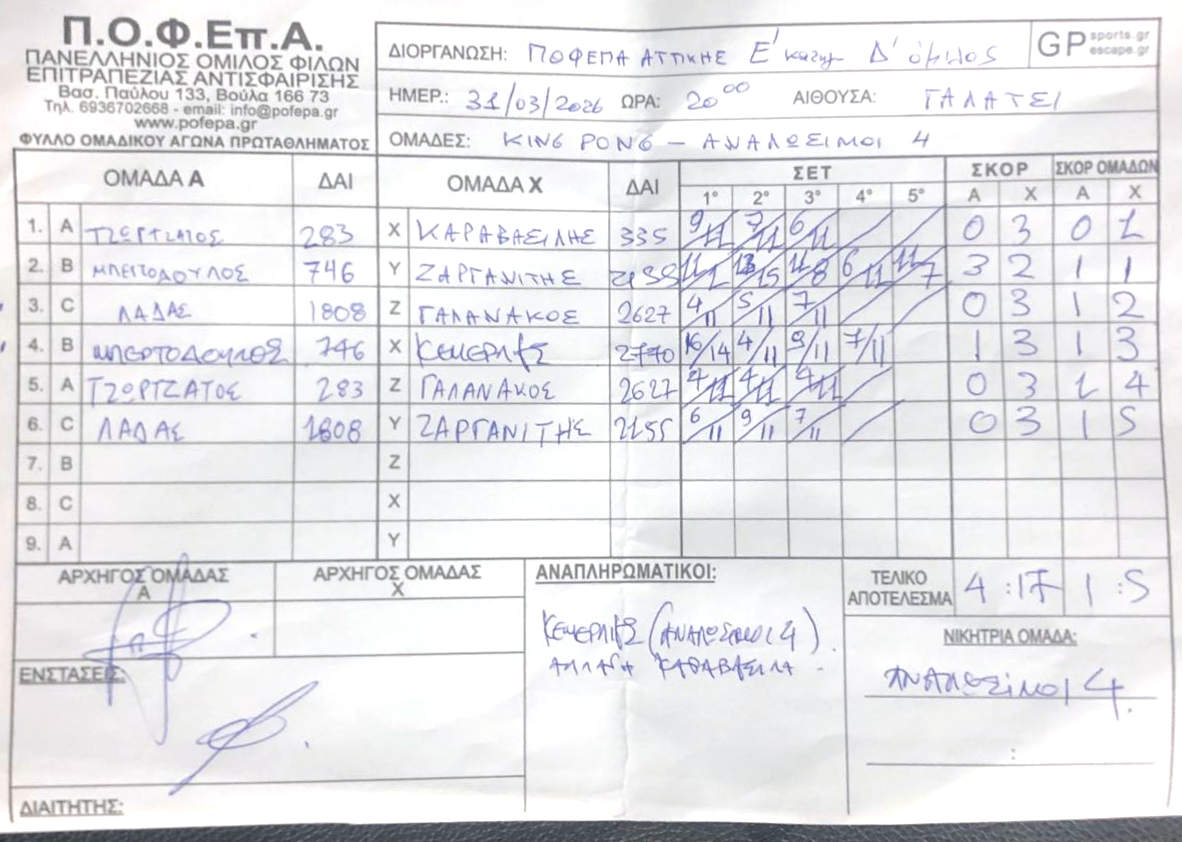 Π.Ο.Φ.Επ.Α.
ΠΑΝΕΛΛΗΝΙΟΣ ΟΜΙΛΟΣ ΦΙΛΩΝ
ΕΠΙΤΡΑΠΕΖΙΑΣ ΑΝΤΙΣΦΑΙΡΙΣΗΣ
Βασ. Παύλου 133, Βούλα 166 73
Τηλ. 6936702668 - email: info@pofepa.gr
www.pofepa.gr
ΦΥΛΛΟ ΟΜΑΔΙΚΟΥ ΑΓΩΝΑ ΠΡΩΤΑΘΛΗΜΑΤΟΣ
ΔΙΟΡΓΑΝΩΣΗ: ΠΟΦΕΠΑ ΑΤΤΙΚΗΣ Ε' κατηγ Δ' όμιλος
GP sports.gr escape.gr
ΗΜΕΡ.: 31/03/2026 ΩΡΑ: 20 00 ΑΙΘΟΥΣΑ: ΓΑΛΑΤΣΙ
ΟΜΑΔΕΣ: KING PONG - ΑΝΑΛΩΣΙΜΟΙ 4
ΟΜΑΔΑ Α ΔΑΙ ΟΜΑΔΑ Χ ΔΑΙ ΣΕΤ ΣΚΟΡ ΣΚΟΡ ΟΜΑΔΩΝ
1° 2° 3° 4° 5° Α Χ Α Χ
1. A ΤΖΩΡΤΖΑΤΟΣ 283 X ΚΑΡΑΒΑΣΙΛΗΣ 335 9/11 7/11 6/11 0 3 0 1
2. B ΜΠΕΡΤΟΔΟΥΛΟΣ 746 Y ΖΑΡΓΑΝΙΤΗΣ 11/2 13/15 11/8 6/11 11/7 3 2 1 1
3. C ΛΑΔΑΣ 1808 Z ΓΑΛΑΝΑΚΟΣ 2627 4/11 5/11 7/11 0 3 1 2
4. B ΜΠΕΡΤΟΔΟΥΛΟΣ 746 X 2770 16/14 4/11 9/11 7/11 1 3 1 3
5. A ΤΖΩΡΤΖΑΤΟΣ 283 Z ΓΑΛΑΝΑΚΟΣ 2627 0 3 1 4
6. C ΛΑΔΑΣ 1808 Y ΖΑΡΓΑΝΙΤΗΣ 2155 6/11 9/11 7/11 0 3 1 5
7. B Z
8. C X
9. A Y
ΑΡΧΗΓΟΣ ΟΜΑΔΑΣ Α
ΑΡΧΗΓΟΣ ΟΜΑΔΑΣ Χ
ΑΝΑΠΛΗΡΩΜΑΤΙΚΟΙ:
(ΑΝΑΛΩΣΙΜΟΙ 4)
ΑΛΛΑΓΗ ΚΑΡΑΒΑΣΙΛΗ
ΤΕΛΙΚΟ ΑΠΟΤΕΛΕΣΜΑ 4 : 17 1 : 5
ΝΙΚΗΤΡΙΑ ΟΜΑΔΑ:
ΑΝΑΛΩΣΙΜΟΙ 4
:
ΕΝΣΤΑΣΕΙΣ:
ΔΙΑΙΤΗΤΗΣ: